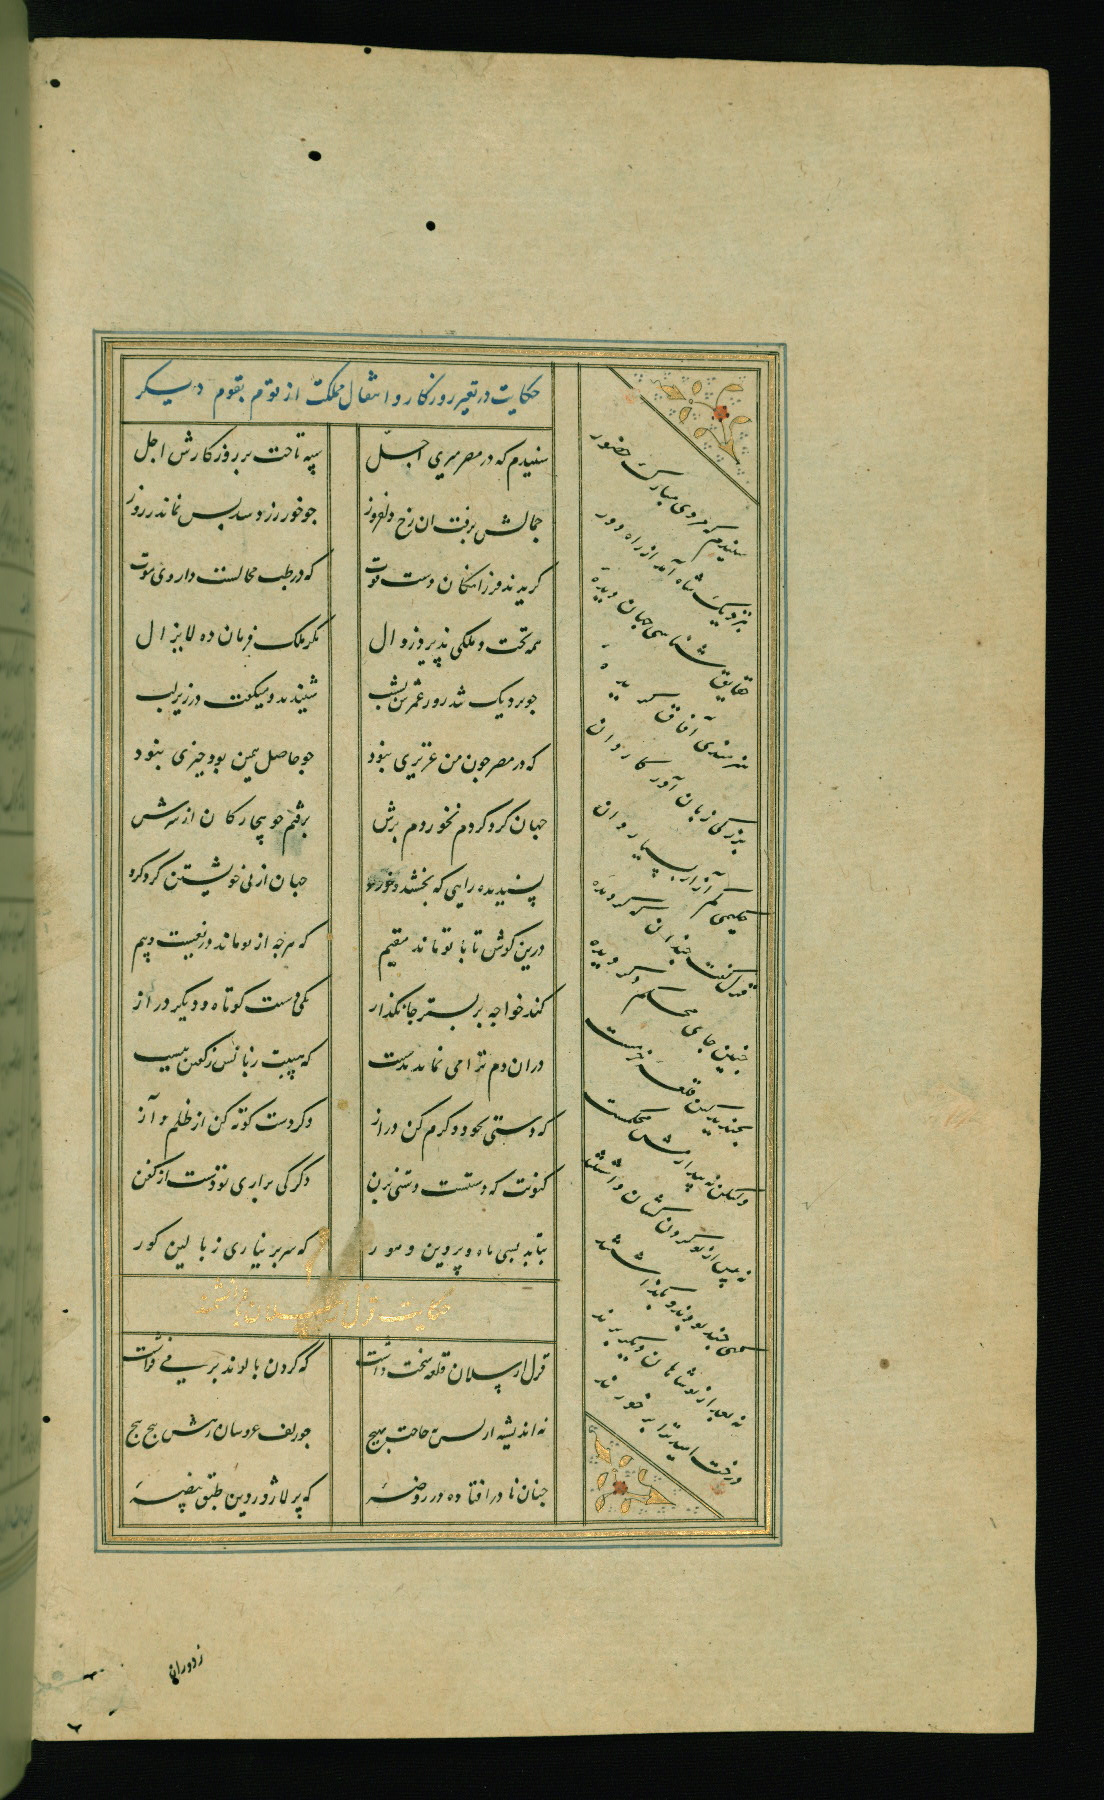 حکایت در تغیر روزکار و انتقال مملکت از قومی بقوم دیکر
شنیدم که در مصر میری اجل سپه تاخت بر روزکارش اجل
جمالش برفت از رخ دلفروز چو خور زرد شد بس نماند ز روز
کزیدند فرزانکان دست فوت که در طب محالست داروی موت
همه تخت و ملکی پذیرد زوال مکر ملک فرمان ده لایزال
چو نزدیک شد روز عمرش بشب شنیدند و میکفت در زیر لب
که در مصر چون من عزیزی نبود چو حاصل همین بود چیزی نبود
جهان کرد کردم نخوردم برش برفتم چو بیچارکان از سرش
پسندیده رایی که بخشد و خورد جهان از پی خویشتن کرد کرد
درین کوش تا با تو ماند مقیم که هرچه از تو ماند دریغست و بیم
کند خواجه بر بستر جانکداز یکی دست کوتاه و دیکر دراز
در ان دم ترا می نماید بدست که هیبت زبانش ز کفتن ببست
که دستی بجود و کرم کن دراز دکر دست کوته کن از ظلم و آز
کنونت که دستست دستی بزن دکر کی براری تو دست از کفن
بتابد بسی ماه و پروین و هور که سر بر نیاری ز بالین کور
حکایت قزل ارسلان
قزل ارسلان قلعه سخت داشت که کردن بالوند بر می فراشت
نه اندیشه از کس نه حاجت بهیچ چو زلف عروسان رهش پیچ پیچ
چنان نادر افتاده در روضه که بر لاژوردین طبق بیضه
شنیدم که مردی مبارک حضور
بنزدیک شاه آمد از راه دور
حقایق شناسی جهان دیده
هنرمندی آفاق کردیده
بزرکی زبان آور کاروان
حکیمی
قزل کفت چندان که کردیده
چنین جای محکم دکر دیده
بخندید کین قلعه خرمست
ولیکن نه پندارمش محکمست
نه پیش از تو کردن کشان داشتند
دمی چند بودند و بکذاشتند
نه بعد از تو شاهان دیکر برند
درخت امید ترا بر خورند
ز دوران